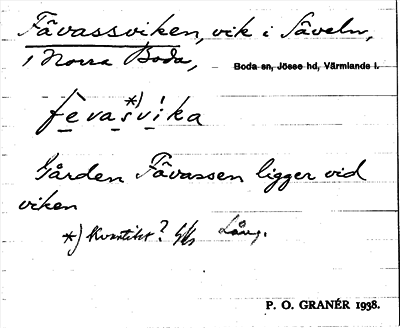 Fåvassviken, vik i Såveln,
i Norra Boda,
Boda sn, Jösse hd, Värmlands l.
*)
fèvasvika
Gården Fåvassen ligger vid
viken
*) Kvantitet? Lång.
P. O. GRANÉR 1938.